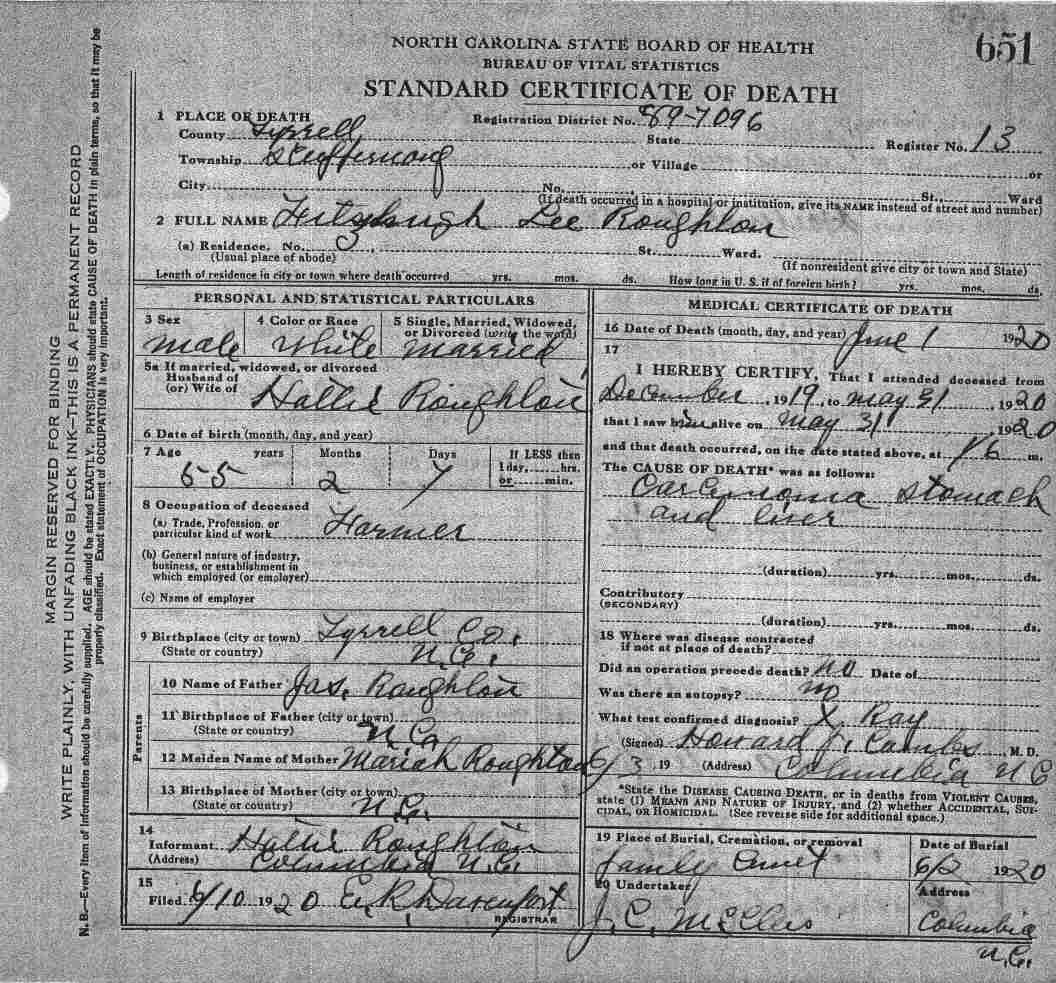 651
NORTH CAROLINA STATE BOARD OF HEALTH
BUREAU OF VITAL STATISTICS
STANDARD CERTIFICATE OF DEATH
1 PLACE OF DEATH
Registration District No. 89-7096
County Tyrrell State Register No. 13
Township Scuppernong or Village or
City No. St., Ward
(If death occurred in a hospital or institution, give its NAME instead of street and number)
2 FULL NAME Fitzhugh Lee Roughton
(a) Residence. No. St. Ward.
(Usual place of abode) (If nonresident give city or town and State)
Length of residence in city or town where death occurred yrs. mos. ds. How long in U. S. if of foreign birth? yrs. mos. ds.
PERSONAL AND STATISTICAL PARTICULARS
3 Sex 4 Color or Race 5 Single, Married, Widowed, or Divorced (write the word)
male White married
5a If married, widowed, or divorced
Husband of
(or) Wife of Hattie Roughton
6 Date of birth (month, day, and year)
7 Age years Months Days If LESS than 1 day, hrs. or min.
55 2 7
8 Occupation of deceased
(a) Trade, Profession, or
particular kind of work Farmer
(b) General nature of industry,
business, or establishment in
which employed (or employer)
(c) Name of employer
9 Birthplace (city or town) Tyrrell Co.
(State or country) N.C.
Parents
10 Name of Father Jas. Roughton
11 Birthplace of Father (city or town)
(State or country) N.C.
12 Maiden Name of Mother Mariah Roughton
13 Birthplace of Mother (city or town)
(State or country) N.C.
14
Informant Hattie Roughton
(Address) Columbia N.C.
15
Filed 6/10 1920 E. R. Davenport
REGISTRAR
MEDICAL CERTIFICATE OF DEATH
16 Date of Death (month, day, and year) June 1 1920
17
I HEREBY CERTIFY, That I attended deceased from
December, 1919, to may 31, 1920
that I saw him alive on may 31, 1920
and that death occurred, on the date stated above, at m.
The CAUSE OF DEATH* was as follows:
Carcinoma stomach
and liver
(duration) yrs. mos. ds.
Contributory
(SECONDARY)
(duration) yrs. mos. ds.
18 Where was disease contracted
if not at place of death?
Did an operation precede death? no Date of
Was there an autopsy? no
What test confirmed diagnosis? X Ray
(Signed) Howard J. Combs, M. D.
6/3 19 (Address) Columbia N C
*State the DISEASE CAUSING DEATH, or in deaths from VIOLENT CAUSES,
state (1) MEANS AND NATURE OF INJURY, and (2) whether ACCIDENTAL, SUI-
CIDAL, OR HOMICIDAL. (See reverse side for additional space.)
19 Place of Burial, Cremation, or removal Date of Burial
Family Cemet 6/2 1920
20 Undertaker Address
J. C. Columbia
N.C.
MARGIN RESERVED FOR BINDING
WRITE PLAINLY, WITH UNFADING BLACK INK—THIS IS A PERMANENT RECORD
N. B.—Every item of information should be carefully supplied. AGE should be stated EXACTLY. PHYSICIANS should state CAUSE OF DEATH in plain terms, so that it may be
properly classified. Exact statement of OCCUPATION is very important.